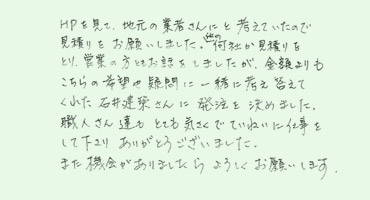 HPを見て、地元の業者さんにと考えていたので
見積りをお願いしました。他の何社か見積りを
とり、営業の方ともお話をしましたが、金額よりも
こちらの希望や疑問に一緒に考え答えて
くれた石井建築さんに発注を決めました。
職人さん達もとても気さくでていねいに仕事を
して下さりありがとうございました。
また機会がありましたらよろしくお願いします。